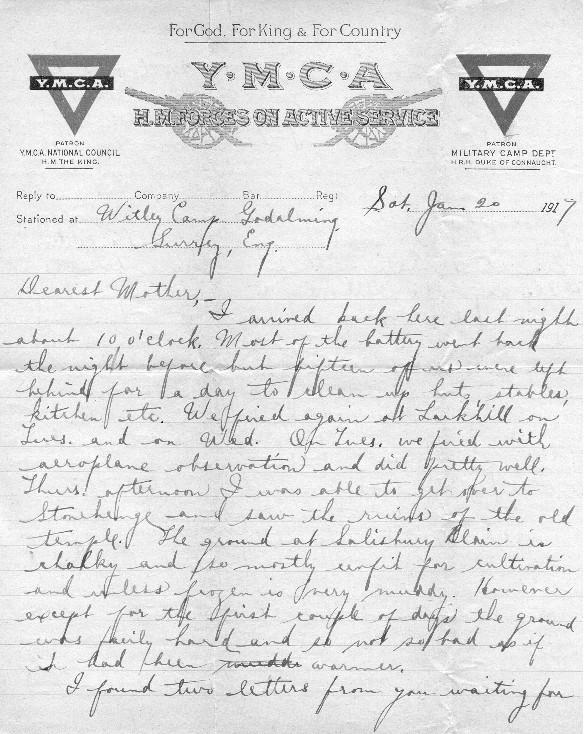 For God, For King & For Country
Y.M.C.A.
Y·M·C·A
Y.M.C.A.
H.M. FORCES ON ACTIVE SERVICE
PATRON
Y.M.C.A. NATIONAL COUNCIL
H.M. THE KING.
PATRON
MILITARY CAMP DEPT
H.R.H. DUKE OF CONNAUGHT.
Reply to Company Bar. Regt
Sat. Jan 20 1917
Stationed at Witley Camp Godalming
Surrey, Eng.
Dearest Mother,-
I arrived back here last night
about 10 o'clock. Most of the battery went back
the night before but fifteen of us were left
behind for a day to clean up huts, stables,
kitchen etc. We fired again at Larkhill on
Tues. and on Wed. On Tues. we fired with
aeroplane observation and did pretty well.
Thurs. afternoon I was able to get over to
Stonehenge and saw the ruins of the old
temple. The ground at Salisbury Plain is
chalky and so mostly unfit for cultivation
and unless frozen is very muddy. However
except for the first couple of days the ground
was fairly hard and so not so bad as if
it had been warmer.
I found two letters from you waiting for